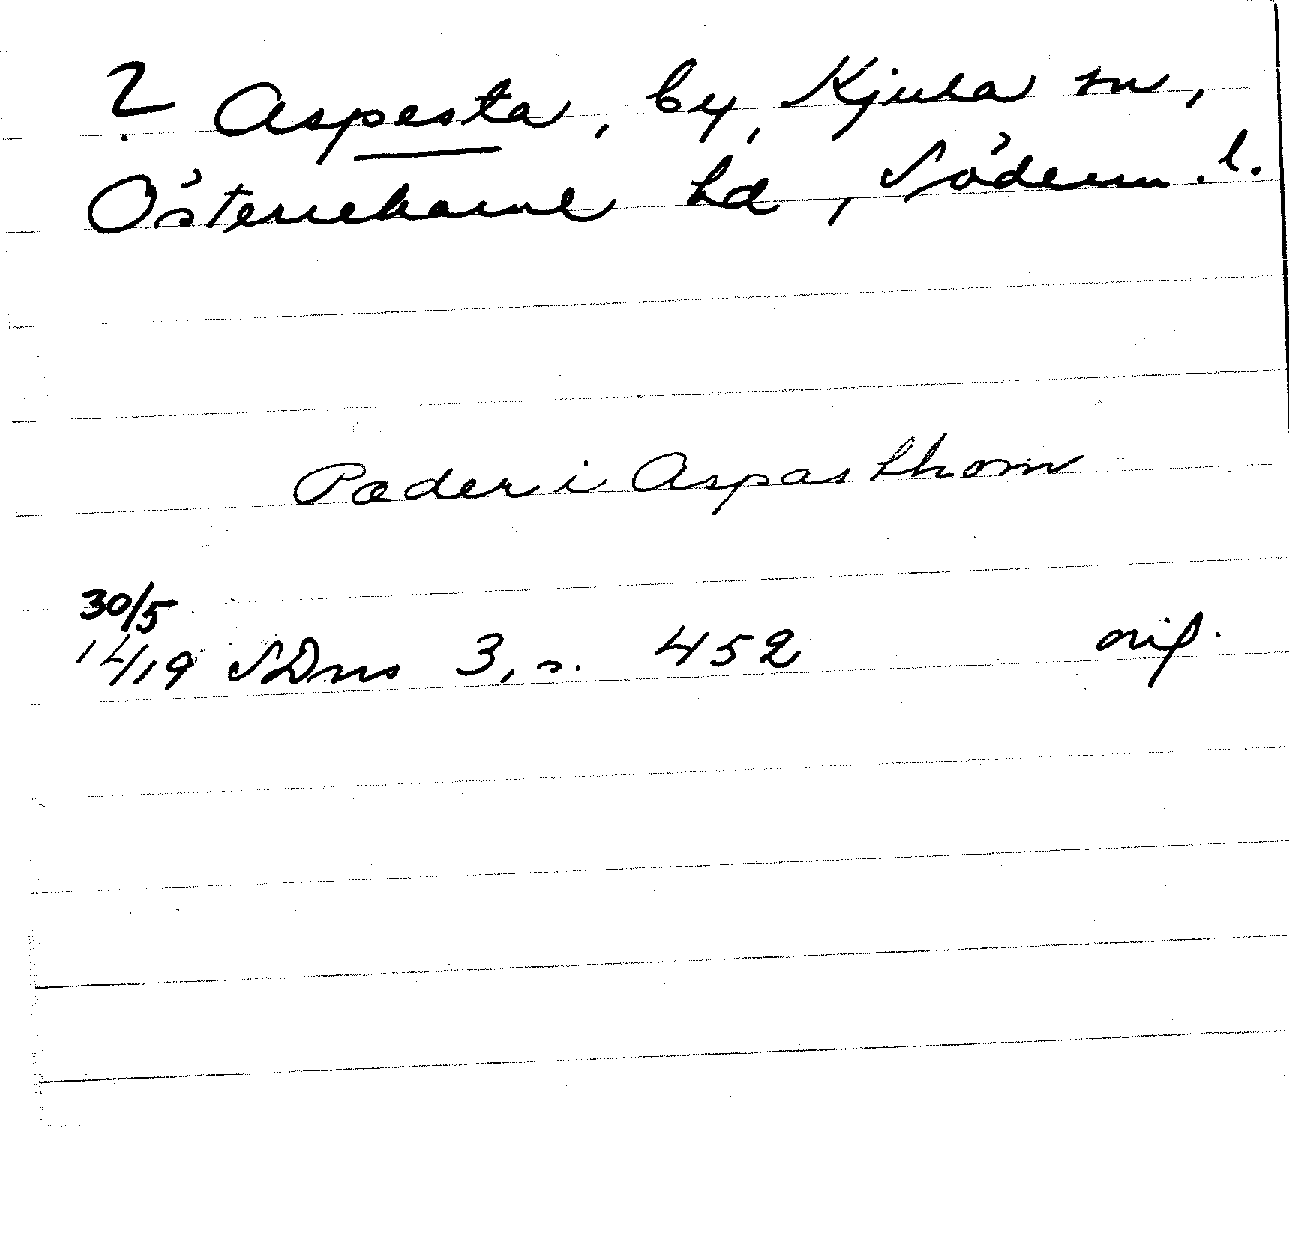 ? Aspesta, by, Kjula sn,
Österrekarne hd, Söderm. l.
Pæder i Aspasthom
30/5
14/19 SDns 3, s. 452 orig.